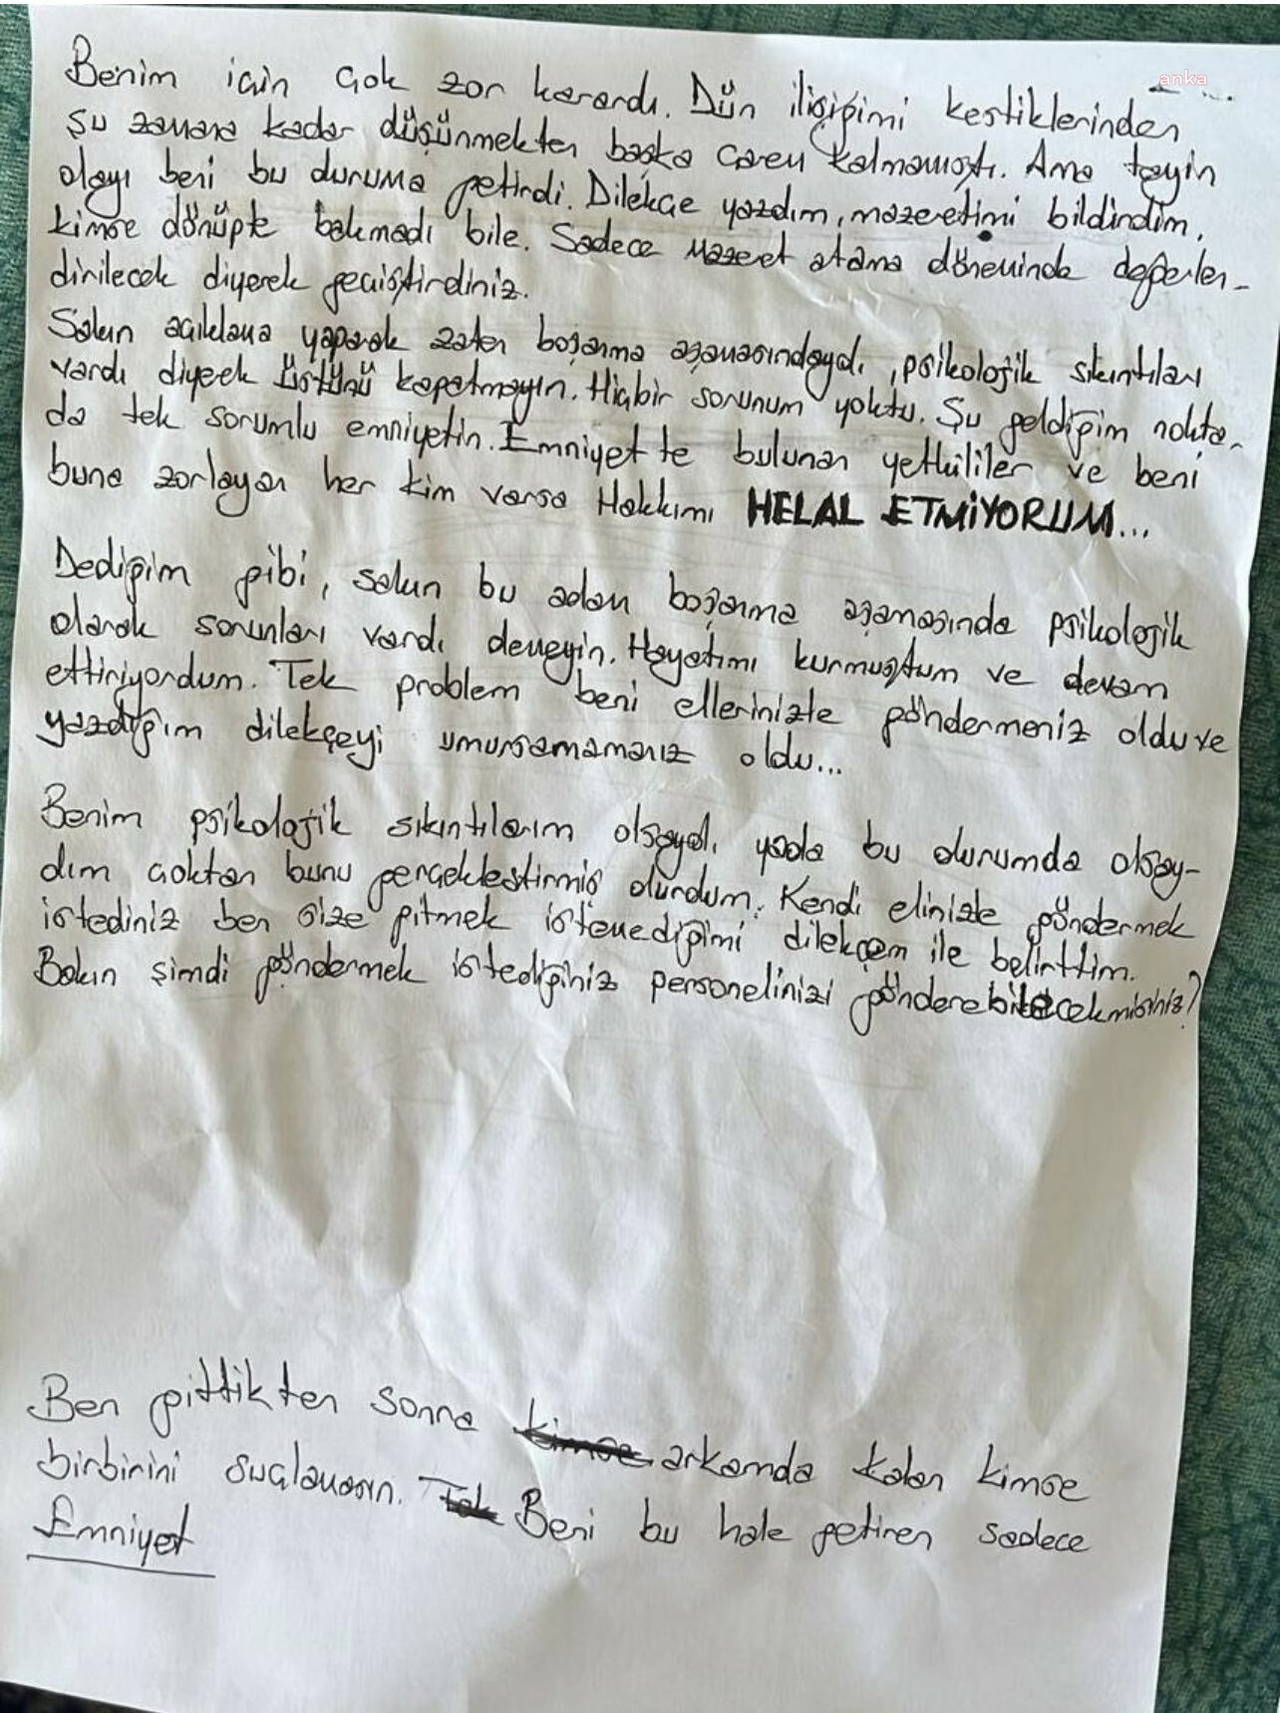 anka
Benim için çok zor karardı. Dün ilişiğimi kestiklerinden
şu zamana kadar düşünmekten başka çarem kalmamıştı. Ama tayin
olayı beni bu duruma getirdi. Dilekçe yazdım, mazeretimi bildirdim,
kimse dönüpte bakmadı bile. Sadece mazeret atama döneminde değerlen-
dirilecek diyerek geçiştirdiniz.
Sakın açıklama yaparak zaten boşanma aşamasındaydı, psikolojik sıkıntıları
vardı diyerek üstünü kapatmayın. Hiçbir sorunum yoktu. Şu geldiğim nokta-
da tek sorumlu emniyetin. Emniyette bulunan yetkililer ve beni
buna zorlayan her kim varsa Hakkımı HELAL ETMİYORUM...
Dediğim gibi, sakın bu adam boşanma aşamasında psikolojik
olarak sorunları vardı demeyin. Hayatımı kurmuştum ve devam
ettiriyordum. Tek problem beni ellerinizle göndermeniz oldu ve
yazdığım dilekçeyi umursamamanız oldu...
Benim psikolojik sıkıntılarım olsaydı yada bu durumda olsay-
dım çoktan bunu gerçekleştirmiş olurdum. Kendi elinizle göndermek
istediniz ben size gitmek istemediğimi dilekçem ile belirttim.
Bakın şimdi göndermek istediğiniz personelinizi gönderebilecekmisiniz?
Ben gittikten sonra kimse arkamda kalan kimse
birbirini suçlamasın. Tek Beni bu hale getiren sadece
Emniyet